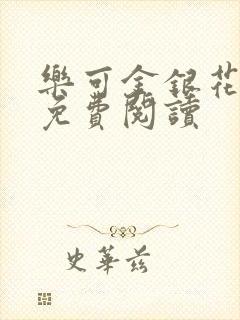 樂可金銀花
免費閱讀
史華茲